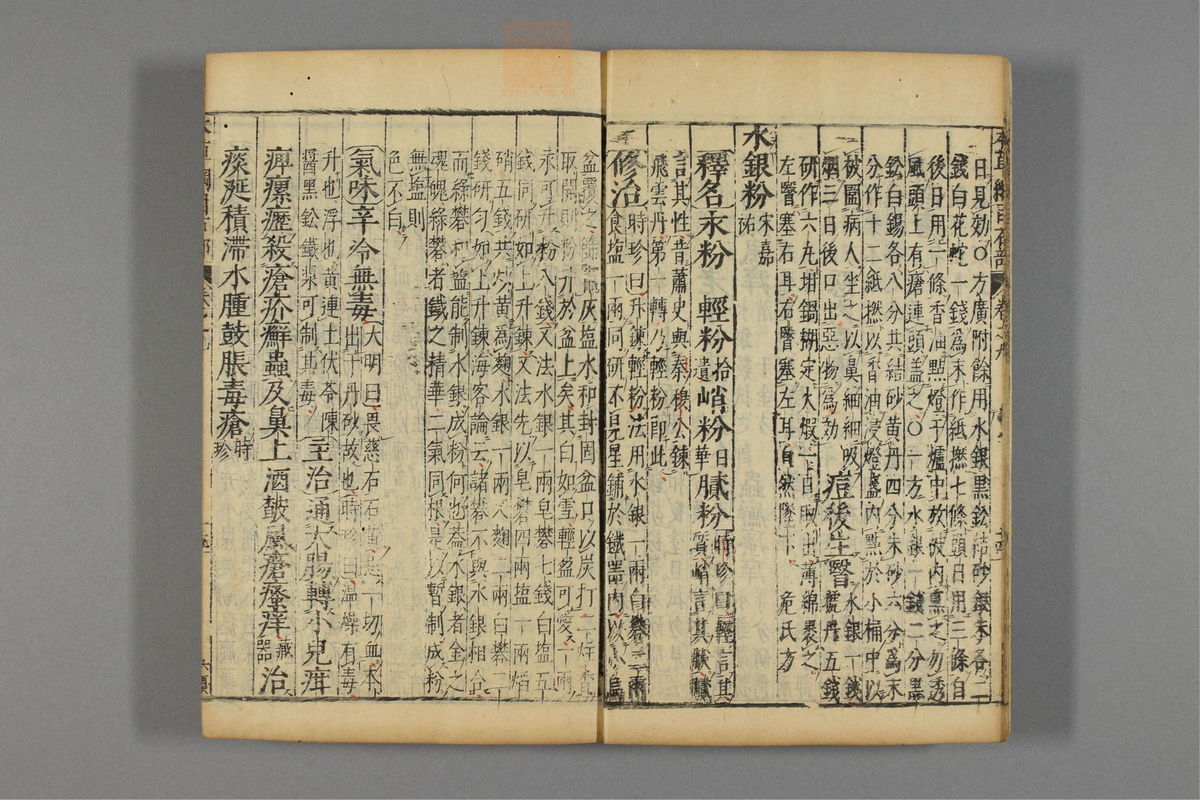 日見効〇方廣附餘用水銀黑鉛結砂銀朱各二
錢白花蛇一錢爲末作紙撚七條頭日用三條自
後日用一條香油點燈于爐中放被內熏之勿透
風頭上有瘡連頭蓋之〇一方水銀一錢二分黑
鉛白錫各八分共結砂黃丹四分朱砂六分爲末
分作十二紙撚以香油浸燈盞內點於小桶中以
被圍病人坐之以鼻細細吸
烟三日後口出惡物爲効
痘後生翳水銀一錢
虢丹五錢
研作六丸坩鍋糊定火煅一
取出薄綿裹之
左翳塞右耳右翳塞左耳自然墜下
危氏方
水銀粉宋嘉祐
釋名汞粉 輕粉拾遺峭粉日華膩粉時珍曰輕言其
質峭言其狀膩
言其性昔蕭史與秦穆公鍊
飛雲丹第一轉乃輕粉卽此
修治時珍曰升鍊輕粉法用水銀一兩白礬二兩
食鹽一兩同研不見星鋪於鐵器內以小烏
盆覆之篩竈灰鹽水和封固盆口以炭打二炷香
取開則粉升於盆上矣其白如雪輕盈可愛一兩
汞可升粉八錢又法水銀一兩皂礬七錢白鹽五
錢同研如上升鍊又法先以皂礬四兩鹽一兩焰
硝五錢共炒黃爲麴水銀一兩又麴二兩白礬二
錢研勻如上升鍊海客論云諸礬不與水銀相合
而綠礬和鹽能制水銀成粉何也蓋水銀者金之
魂魄綠礬者鐵之精華二氣同根是以暫制成粉
無鹽則
色不白
氣味辛冷無毒大明曰畏慈石石
一切血本
出于丹砂故也時珍曰溫燥有毒
升也浮也黃連土伏苓陳
醬黑鉛鐵漿可制其毒
主治通大腸轉小兒疳
痺瘰癧殺瘡疥癬蟲及鼻上酒皶風瘡瘙痒藏器治
痰涎積滯水腫鼓脹毒瘡時珍